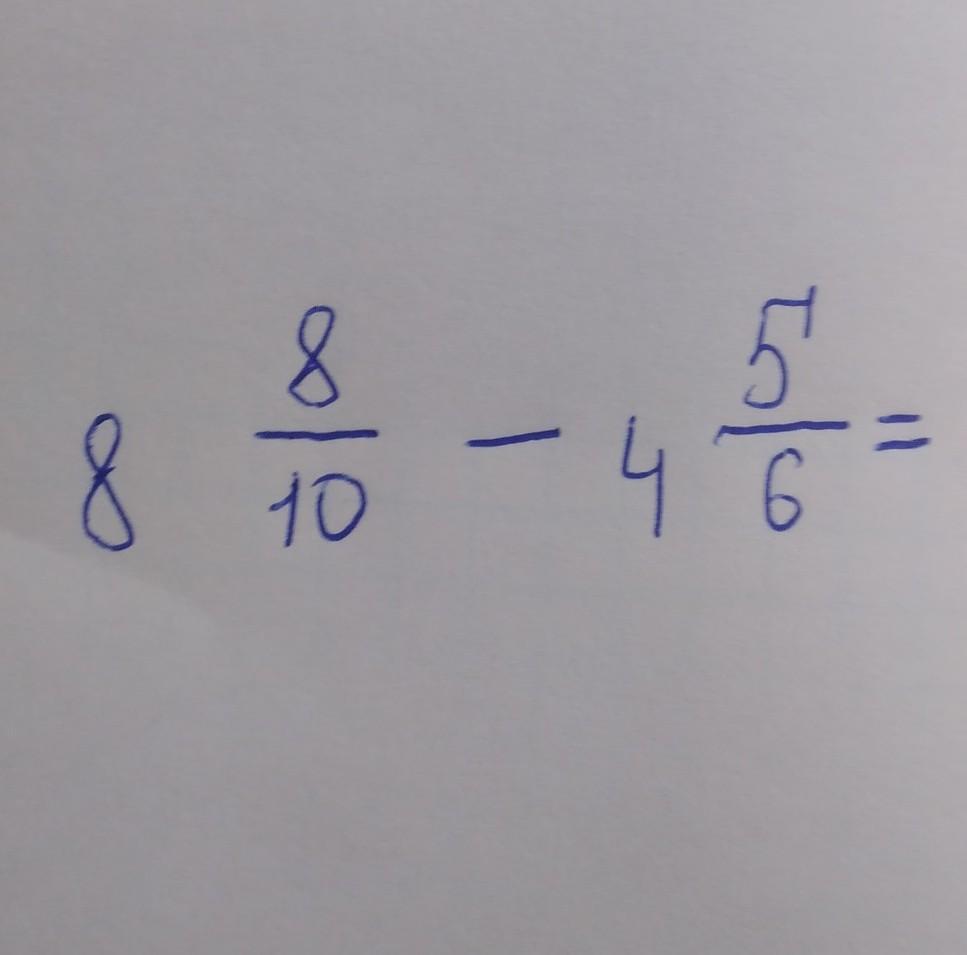 8 8/10 - 4 5/6 =